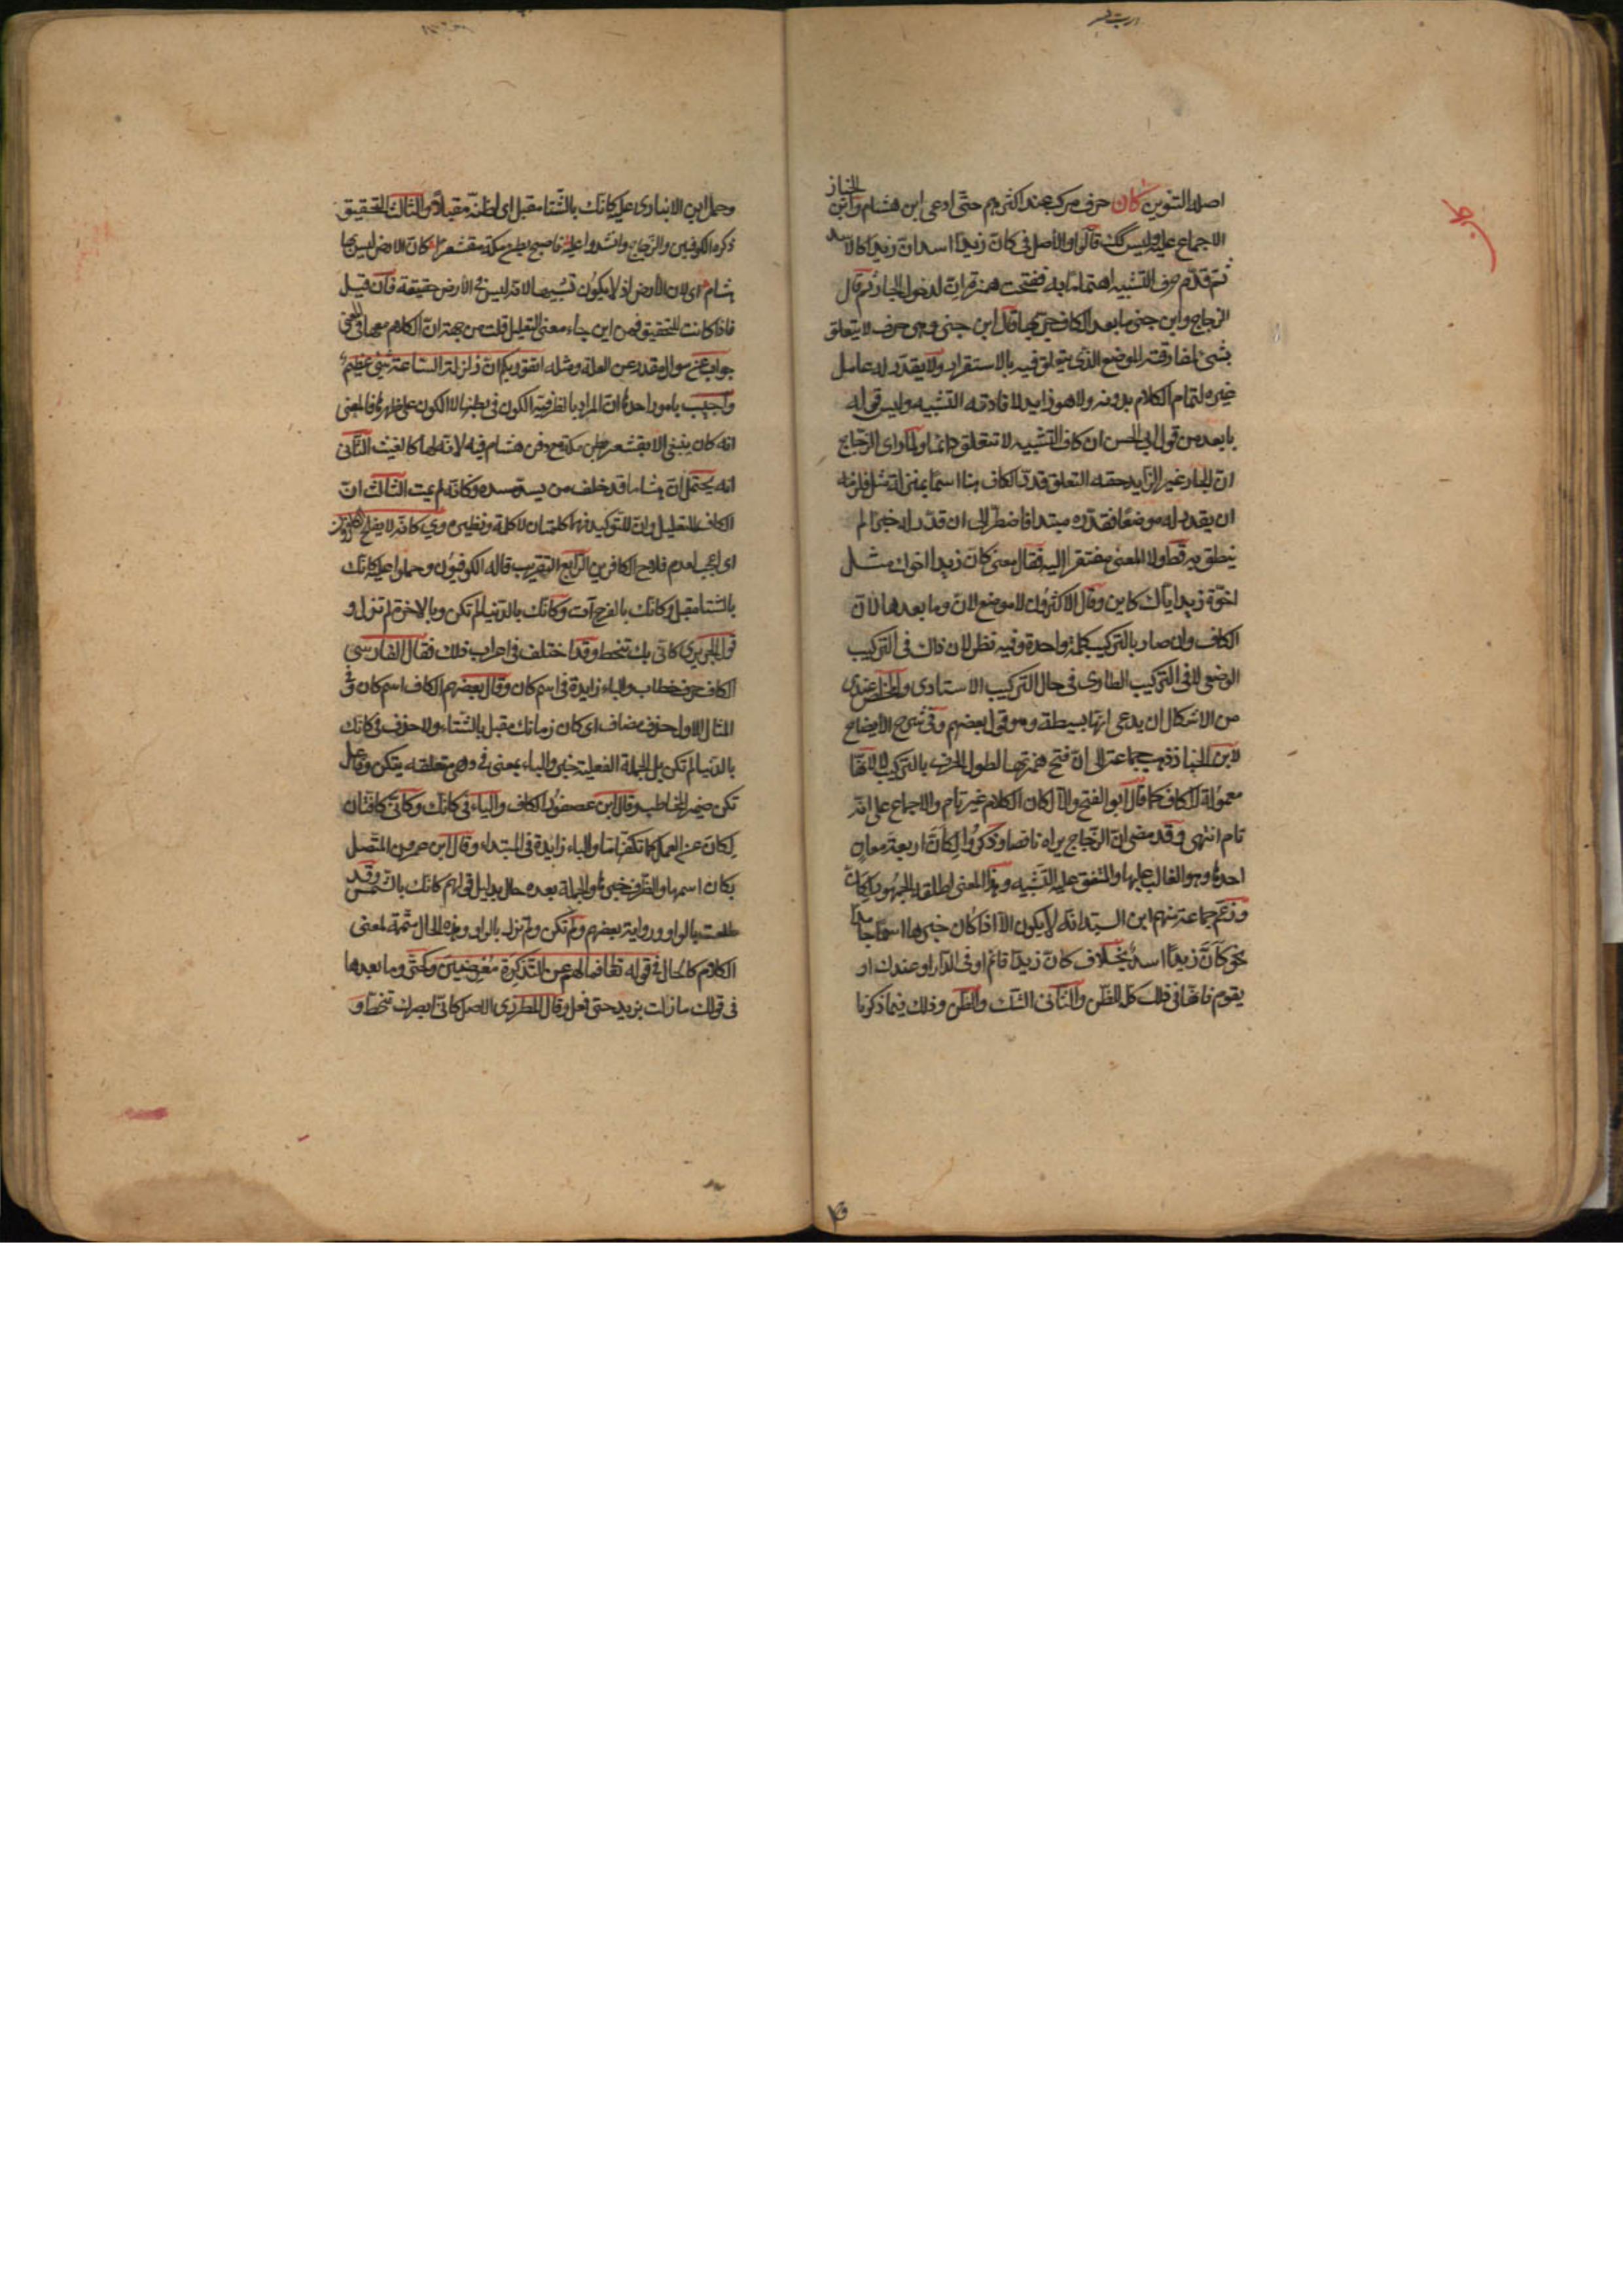 اصله التنوين كان حرف مركب عند اكثرهم حتى ادعى ابن هشام وابن الخباز
الاجماع عليه وليس كذلك قالوا والأصل فى كانّ زيدًا اسد ان زيدًا كالاسد
ثم قدّم حرف التشبيه اهتمامًا به ففتحت همزة انّ لدخول الجار ثم قال
الزجاج وابن جنى ما بعد الكاف جر بها قال ابن جنى وهى حرف لا يتعلق
بشئ لمفارقته الموضع الذى يتعلق فيه بالاستقرار ولا يقدّر له عامل
غيره لتمام الكلام بدونه ولا هو زايد لافادته التشبيه وليس قوله
بابعد من قول ابى الحسن ان كاف التشبيه لا تتعلق دائما ولما راى الزجاج
انّ الجار غير الزايد حقه التعلق قدّر الكاف هنا اسمًا بمنزلة مثل فلزمه
ان يقدر له موضعًا فقدّره مبتدا فاضطرّ الى ان قدّر له خبرا لم
ينطق به قط ولا المعنى مفتقر اليه فقال معنى كانّ زيدا اخوك مثل
اخوّة زيد اياك كاين وقال الاكثرون لا موضع لانّ وما بعدها لانّ
الكاف وان صار بالتركيب كلمة واحدة وفيه نظر لان ذاك فى التركيب
الوضعى لا فى التركيب الطارى فى حال التركيب الاسنادى والمخلص عندى
من الاشكال ان يدعى انها بسيطة وهو قول بعضهم وفى شرح الايضاح
لابن الخباز ذهب جماعة الى انّ فتح همزتها لطول الحرف بالتركيب لا لانها
معمولة للكاف كما قال ابو الفتح والا لكان الكلام غير تام والاجماع على انه
تام انتهى وقد مضى انّ الزجاج يراه ناقصا وذكروا لكانّ اربعة معانٍ
احدها وهو الغالب عليها والمتفق عليه التشبيه وهذا المعنى اطلقه الجمهور لكانّ
وزعم جماعة منهم ابن السيد انه لا يكون الا اذا كان خبرها اسما جامدا
نحو كانّ زيدًا اسدٌ بخلاف كانّ زيدًا قائم او فى الدار او عندك او
يقوم فانها فى ذلك كله للظن والثانى الشك والظن وذلك فيما ذكرنا
وحمل ابن الانبارى عليه كانك بالشتا مقبل اى اظنه مقبلا والثالث التحقيق
ذكره الكوفيين والزجاج وانشدوا عليه فاصبح بطن مكة مقشعرا كانّ الارض ليس بها
هشام اى لان الارض اذ لا يكون تشبيها لانه ليس فى الأرض حقيقة فان قيل
فاذا كانت للتحقيق فمن اين جاء معنى التعليل قلت من جهة انّ الكلام معها فى المعنى
جواب عن سوال مقدر عن العلة ومثله اتقوا ربكم انّ زلزلة الساعة شئ عظيم
واجيب بامور احدها انّ المراد بالظرفية الكون فى بطنها لا الكون على ظهرها فالمعنى
انه كان ينبغى الا يقشعر بطن مكة مع دفن هشام فيه لانه لها كالغيث الثانى
انه يحتمل انّ هشاما قد خلف من يسد مسده وكانه لم يمت الثالث انّ
الكاف للتعليل وانّ للتوكيد فهما كلمتان لا كلمة ونظيره وى كانه لا يفلح الكافرون
اى اعجب لعدم فلاح الكافرين الرابع التقريب قاله الكوفيون وحملوا عليه كانك
بالشتا مقبل وكانك بالفرج آت وكانك بالدنيا لم تكن وبالاخرة لم تزل و
قول الحريرى كانى بك تنحط وقد اختلف فى اعراب ذلك فقال الفارسى
الكاف حرف خطاب والباء زايدة فى اسم كان وقال بعضهم الكاف اسم كان وفى
المثال الاول حذف مضاف اى كان زمانك مقبل بالشتاء ولا حذف فى كانك
بالدنيا لم تكن بل الجملة الفعلية خبر والباء بمعنى فى وهى متعلقة بتكن وفاعل
تكن ضمير المخاطب وقال ابن عصفور الكاف والياء فى كانك وكانى كافتان
لكانّ عن العمل كما تكفها ما والباء زايدة فى المبتداء وقال ابن عمرون المتصل
بكان اسمها والظرف خبرها والجملة بعده حال بدليل قولهم كانك بالشمس وقد
طلعت بالواو ورواية بعضهم ولم تكن ولم تزل بالواو وهذه الحال متممة لمعنى
الكلام كالحال فى قوله تعالى فما لهم عن التذكرة معرضين وكحتى وما بعدها
فى قولك ما زلت بزيد حتى فعل وقال المطرزى الاصل كانى ابصرك تنحط و